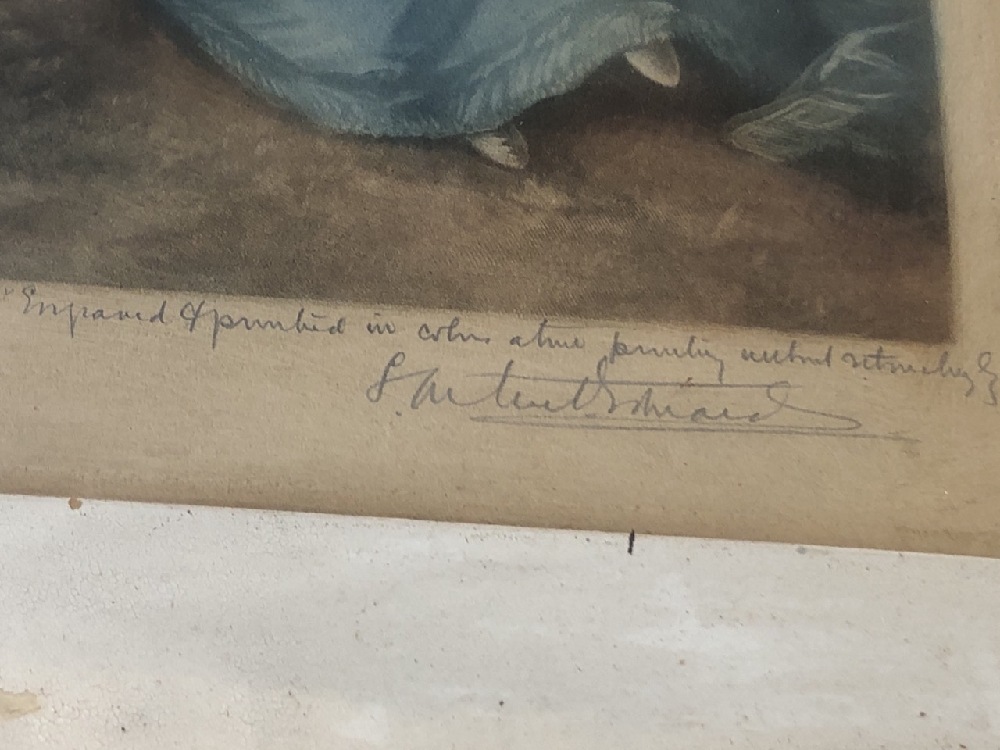 "Engraved & printed in colour at one printing without retouching by
S. Arlent Edwards